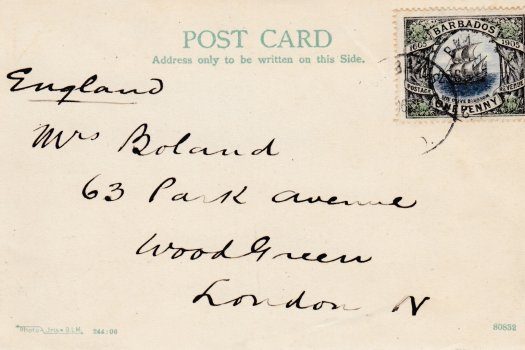 POST CARD
Address only to be written on this Side.
BARBADOS
1605 1905
POSTAGE REVENUE
ONE PENNY
England
Mrs Boland
63 Park avenue
Wood Green
London N
244:06
80832